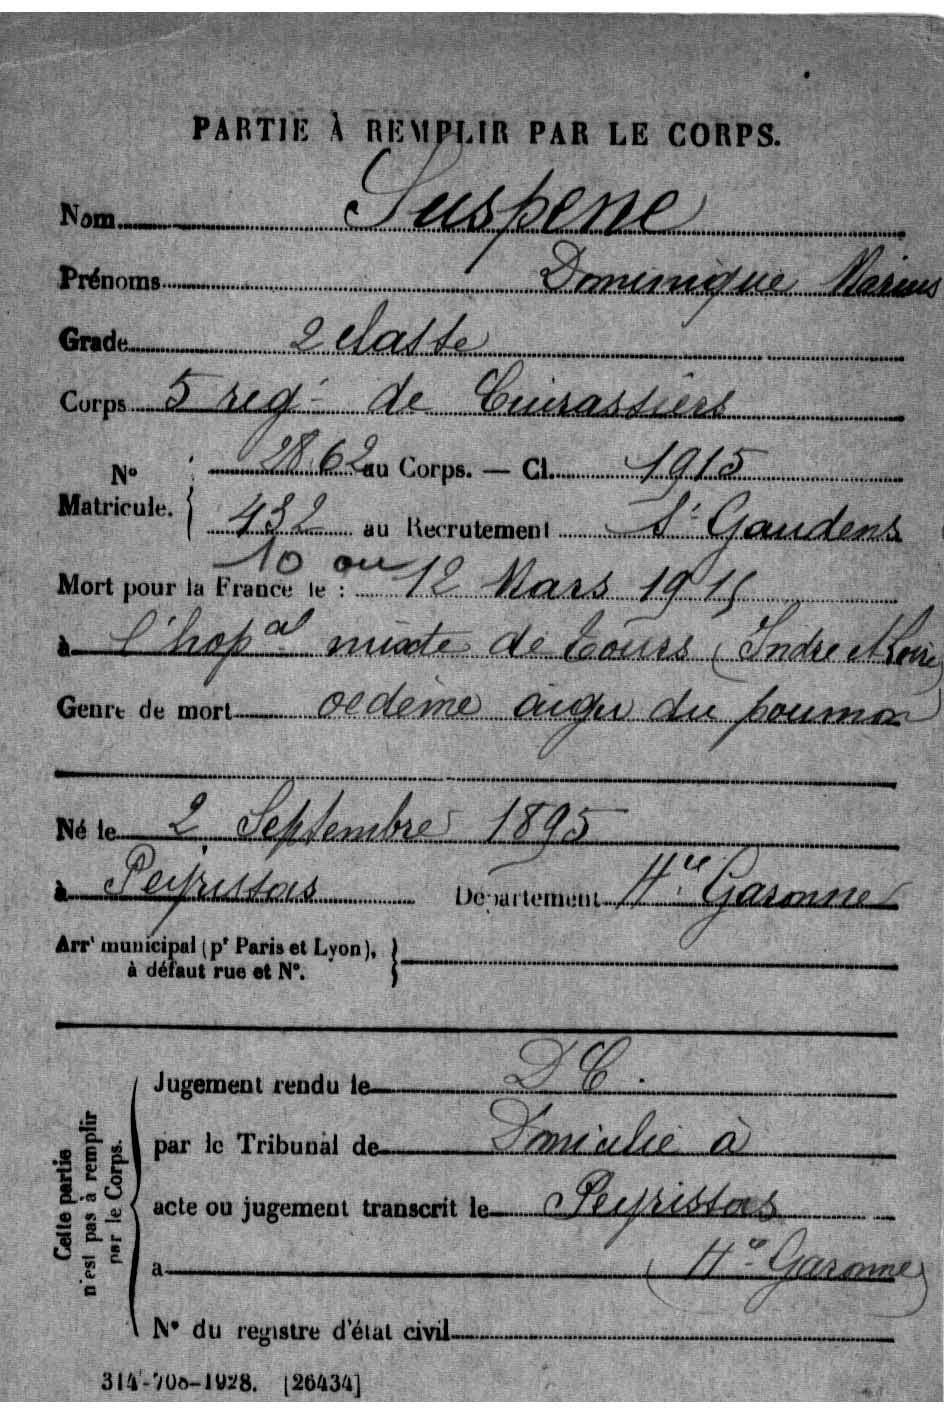 PARTIE À REMPLIR PAR LE CORPS.
Nom Suspene
Prénoms Dominique Marius
Grade 2 classe
Corps 5 regt de Cuirassiers
N° Matricule. { 2862 au Corps. — Cl. 1915
432 au Recrutement St Gaudens
10 ou
Mort pour la France le : 12 Mars 1915
à l'hopal mixte de Tours (Indre et Loire)
Genre de mort oedème aigu du poumon
Né le 2 Septembre 1895
à Peyrissas Département Hte Garonne
Arrt municipal (pr Paris et Lyon), }
à défaut rue et N°.
Cette partie n'est pas à remplir par le Corps.
Jugement rendu le DC.
par le Tribunal de Domicilié à
acte ou jugement transcrit le Peyrissas
a (Hte Garonne)
N° du registre d'état civil
314-708-1928. [26434]